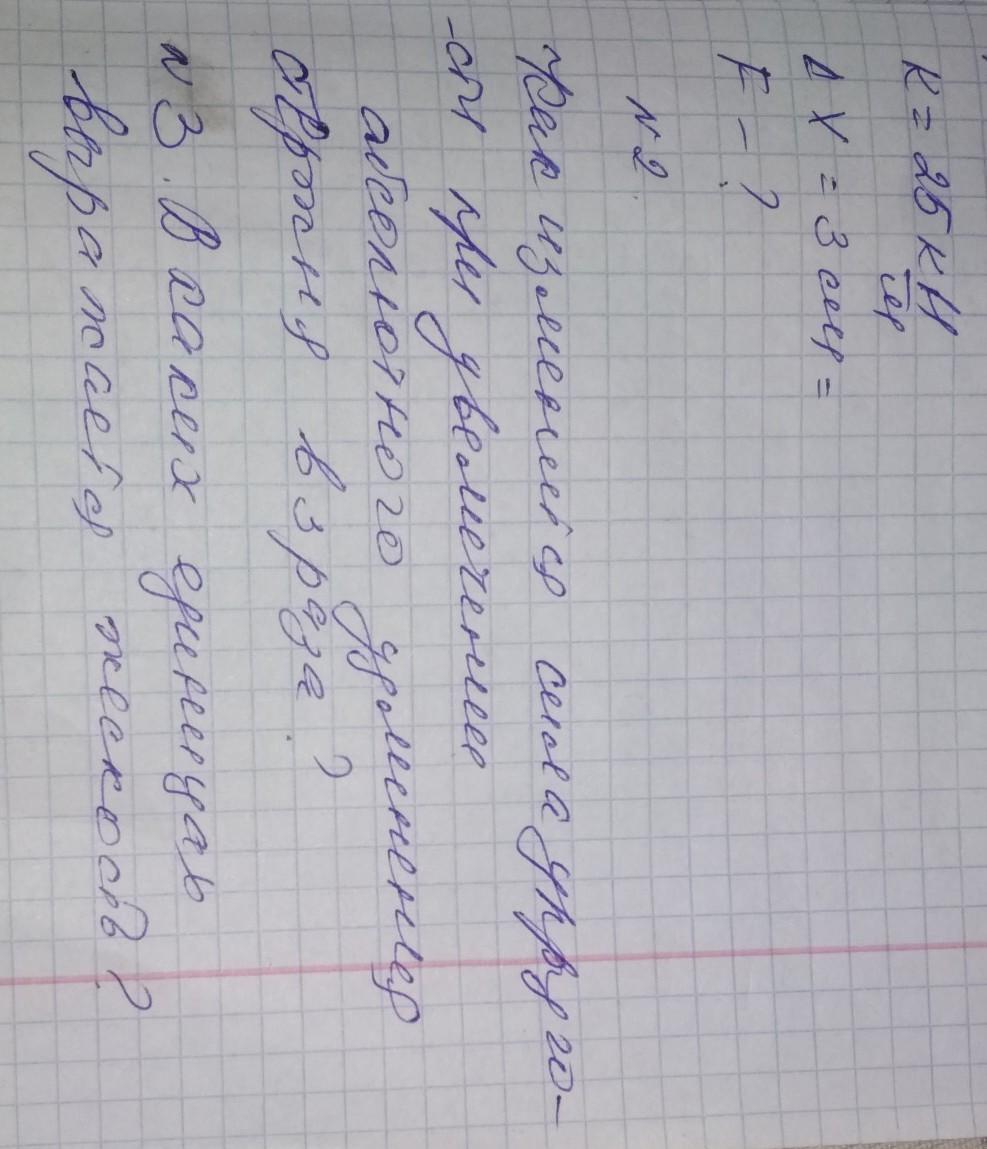 K = 25 кН/м
Δ X = 3 см =
F - ?
N 2
Как изменится сила упруго-
-сти при увеличении
абсолютного удлинения
стержня в 3 раза?
N 3. В каких единицах
выражается жесткость?